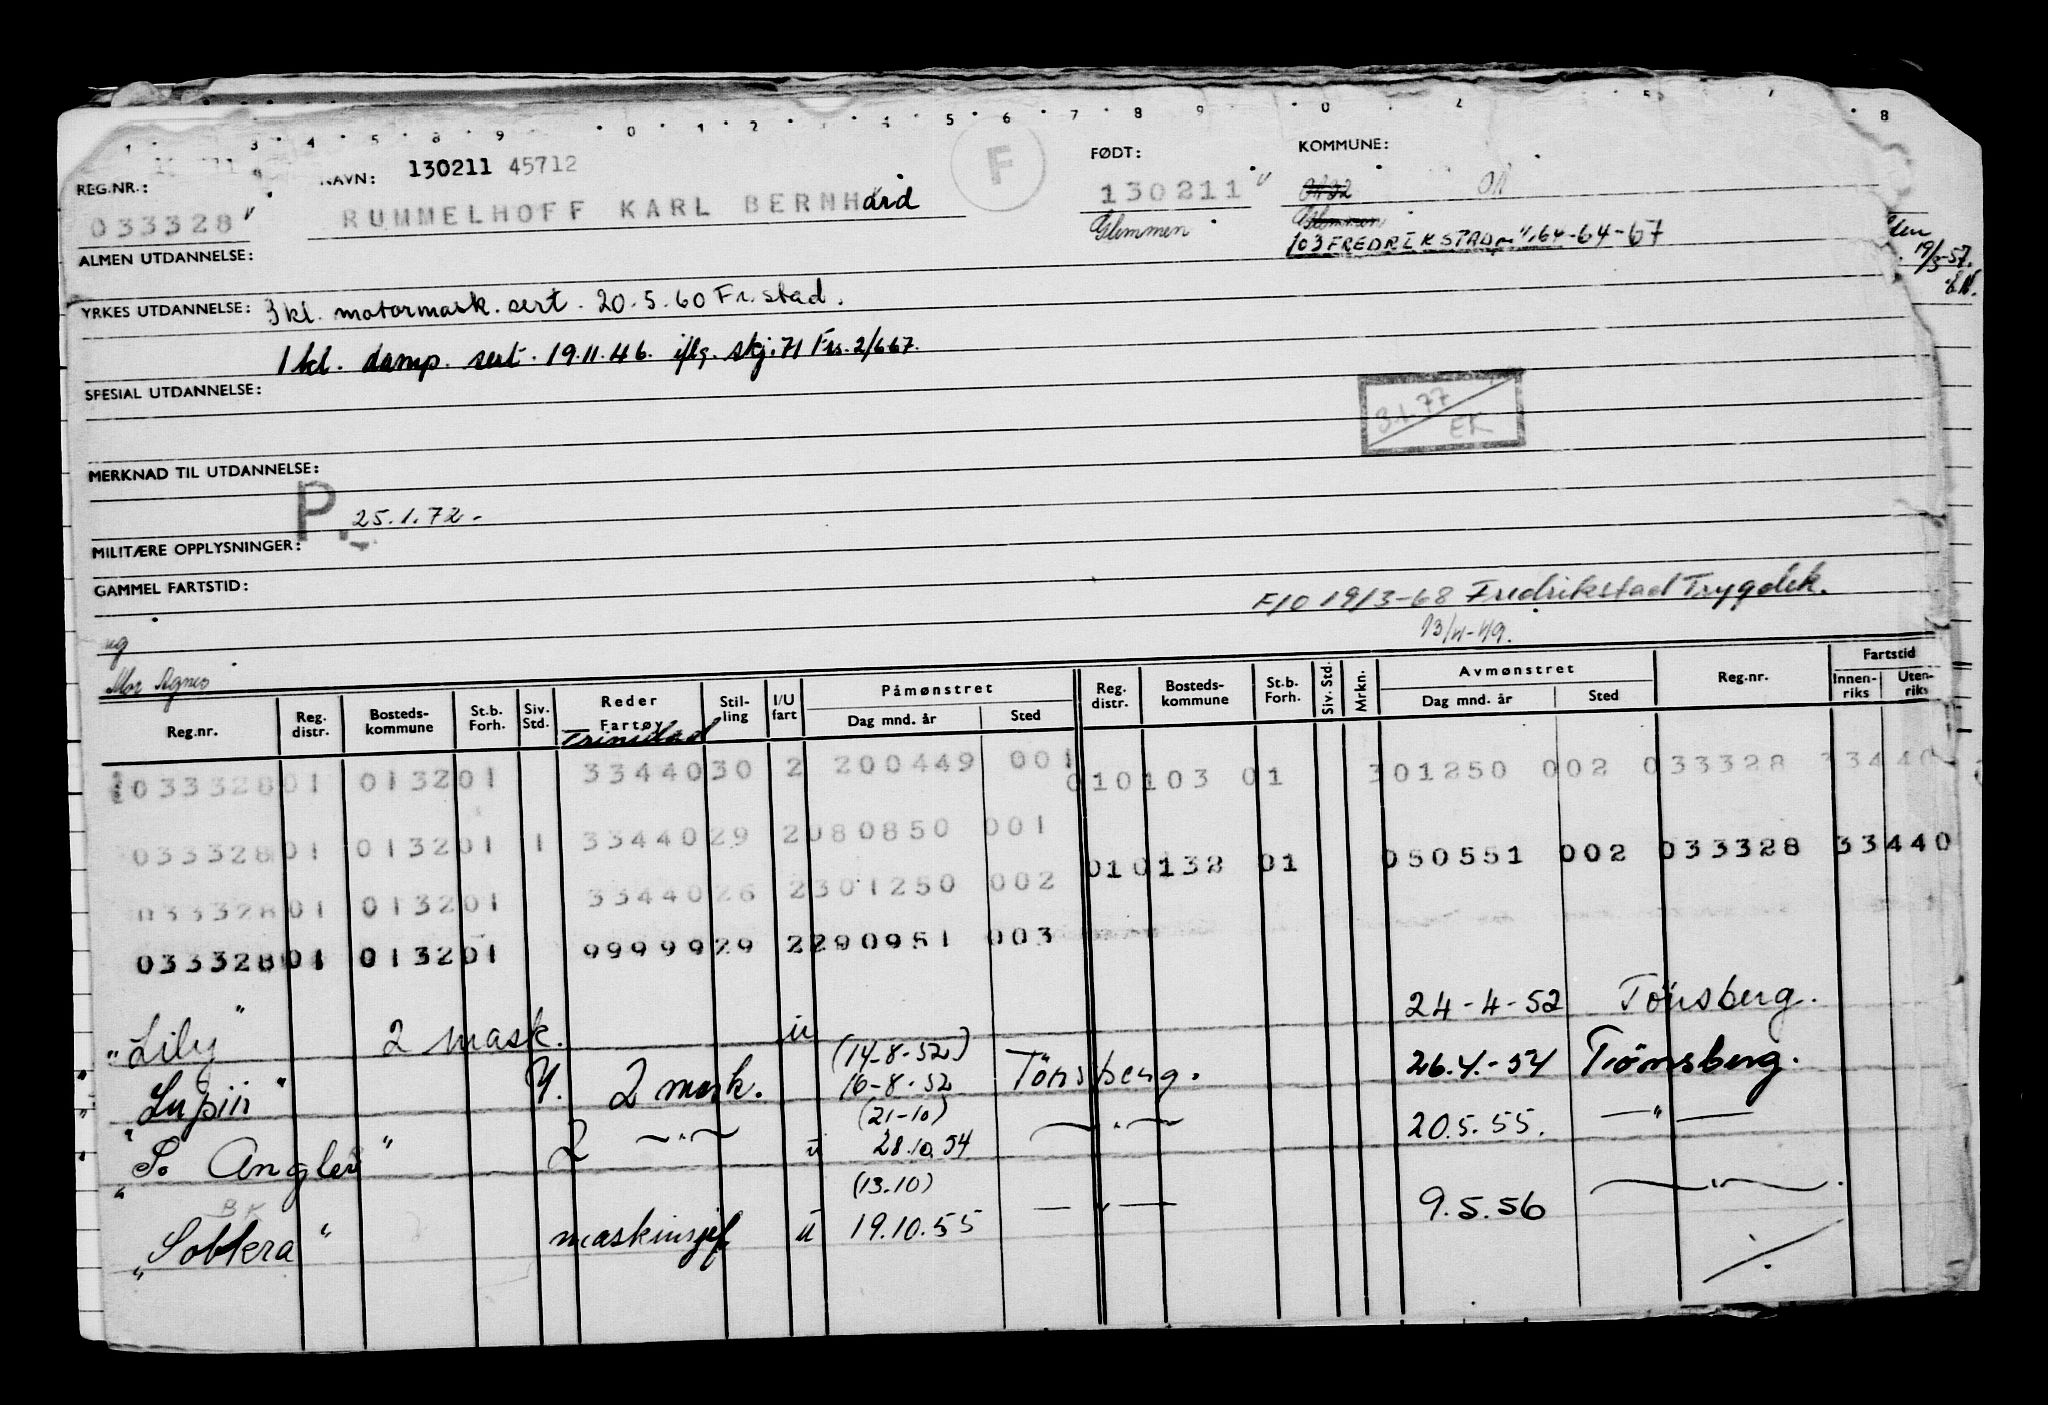 1 3 4 5 8 9 0 1 2 4 5 6 7 8 9 0 2 5 7 8
REG.NR.: NAVN: 130211 45712 F FØDT: KOMMUNE:
033328 RUMMELHOFF KARL BERNHard 130211
Glemmen Glemmen
103 FREDRIKSTAD 64-64-67
19/3-57.
ALMEN UTDANNELSE:
YRKES UTDANNELSE: 3 kl. motormask. sert. 20.5.60 Fr.stad.
1 kl. damp. sert. 19.11.46. iflg. skj. 71 Frs. 2/6 67.
SPESIAL UTDANNELSE:
3.1.77
EK
MERKNAD TIL UTDANNELSE:
P. 25.1.72-
MILITÆRE OPPLYSNINGER:
GAMMEL FARTSTID:
F/O 19/3-68 Fredrikstad Trygdek.
ug
Mor Agnes
Reg.nr. Reg. distr. Bosteds-kommune St.b. Forh. Siv. Std. Reder Fartøy Stil-ling I/U fart Påmønstret Dag mnd. år Sted Reg. distr. Bosteds-kommune St.b. Forh. Siv. Std. Mrkn. Avmønstret Dag mnd. år Sted Reg.nr. Fartstid Innen-riks Uten-riks
Trinidad
033328 01 0132 01 33440 30 2 200449 001 01 0103 01 301250 002 033328 33440
033328 01 0132 01 1 33440 29 2 080850 001 01 0132 01 050551 002 033328 33440
033328 01 0132 01 33440 26 2 301250 002
033328 01 0132 01 99999 29 2 290951 003
"Lily" 2 mask. u 24-4-52 Tönsberg.
(14-8-52)
"Lupiii" 2 mask. 16-8-52 Tönsberg. 26.4.-54 Tönsberg.
(21-10)
"S. Anglev" 2 —"— u 28.10.54 —"— 20.5.55. —"—
(13.10)
BK
"Solkera" maskinsjef u 19.10.55 —"— 9.5.56 —"—